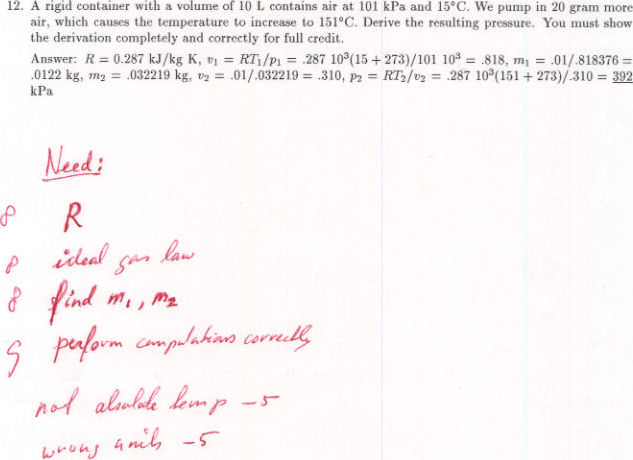 12. A rigid container with a volume of 10 L contains air at 101 kPa and 15°C. We pump in 20 gram more
air, which causes the temperature to increase to 151°C. Derive the resulting pressure. You must show
the derivation completely and correctly for full credit.
Answer: R = 0.287 kJ/kg K, v₁ = RT₁/p₁ = .287 10³(15 + 273)/101 10³ = .818, m₁ = .01/.818376 =
.0122 kg, m₂ = .032219 kg, v₂ = .01/.032219 = .310, p₂ = RT₂/v₂ = .287 10³(151 + 273)/.310 = 392
kPa
Need:
8 R
8 ideal gas law
8 find m₁, m₂
9 perform computations correctly
not absolute temp -5
wrong units -5